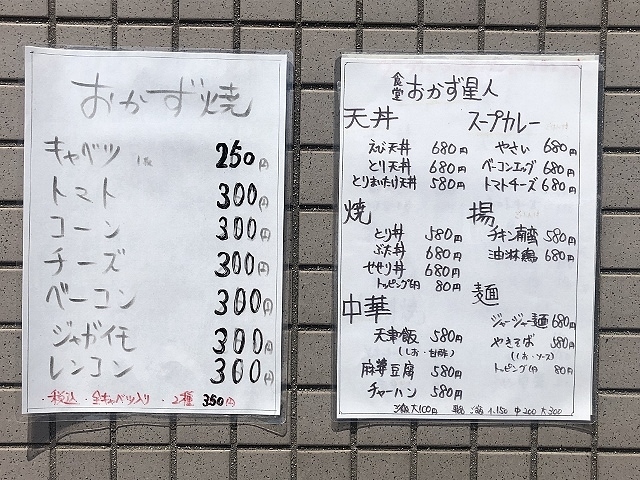 おかず焼
キャベツ 250円
トマト 300円
コーン 300円
チーズ 300円
ベーコン 300円
ジャガイモ 300円
レンコン 300円
・税込 ・全キャベツ入り ・2種 350円
食堂 おかず星人
天丼
えび天丼 680円
とり天丼 680円
とりまいたけ天丼 580円
スープカレー
やさい 680円
ベーコンエッグ 680円
トマトチーズ 680円
焼
とり丼 580円
ぶた丼 680円
せせり丼 680円
トッピング 80円
揚
チキン南蛮 580円
油淋鶏 680円
中華
天津飯 580円
(しお・甘酢)
麻婆豆腐 580円
チャーハン 580円
麺
ジャージャー麺 680円
やきそば 580円
(しお・ソース)
トッピング 80円
大100円 小150 中200 大300